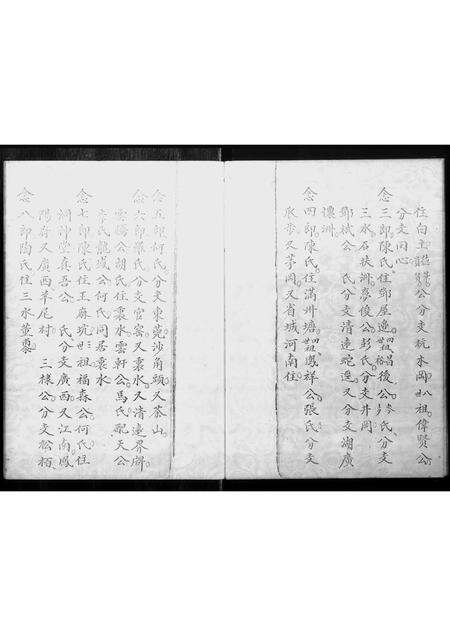 住白玉龍公分支杭本岡 八祖偉賢公
分支同心
念三郎陳氏住鄧屋邊 四世昌後公李氏分支
三水石扶洲彥俊公彭氏分支井岡
鄭城公 氏分支清遠蛇邊又分支湖廣
澧洲
念四郎陳氏住滿州塘 四世鳳祥公張氏分支
水步又茅岡又省城河南住
念五郎柯氏分支東莞沙角頭又茶山
念六郎羅氏分支官窑又清遠界牌
雲陽公胡氏住裹水雲軒公馬氏配天公
李氏龍威公何氏同居裹水
念七郎陳氏住王麻坑 世祖福森公何氏住
洞神堂真吾公 氏分支廣西又江南鳳
陽府又廣西草尾村 三樣公分支松栢
念八郎陶氏住三水蓳裹